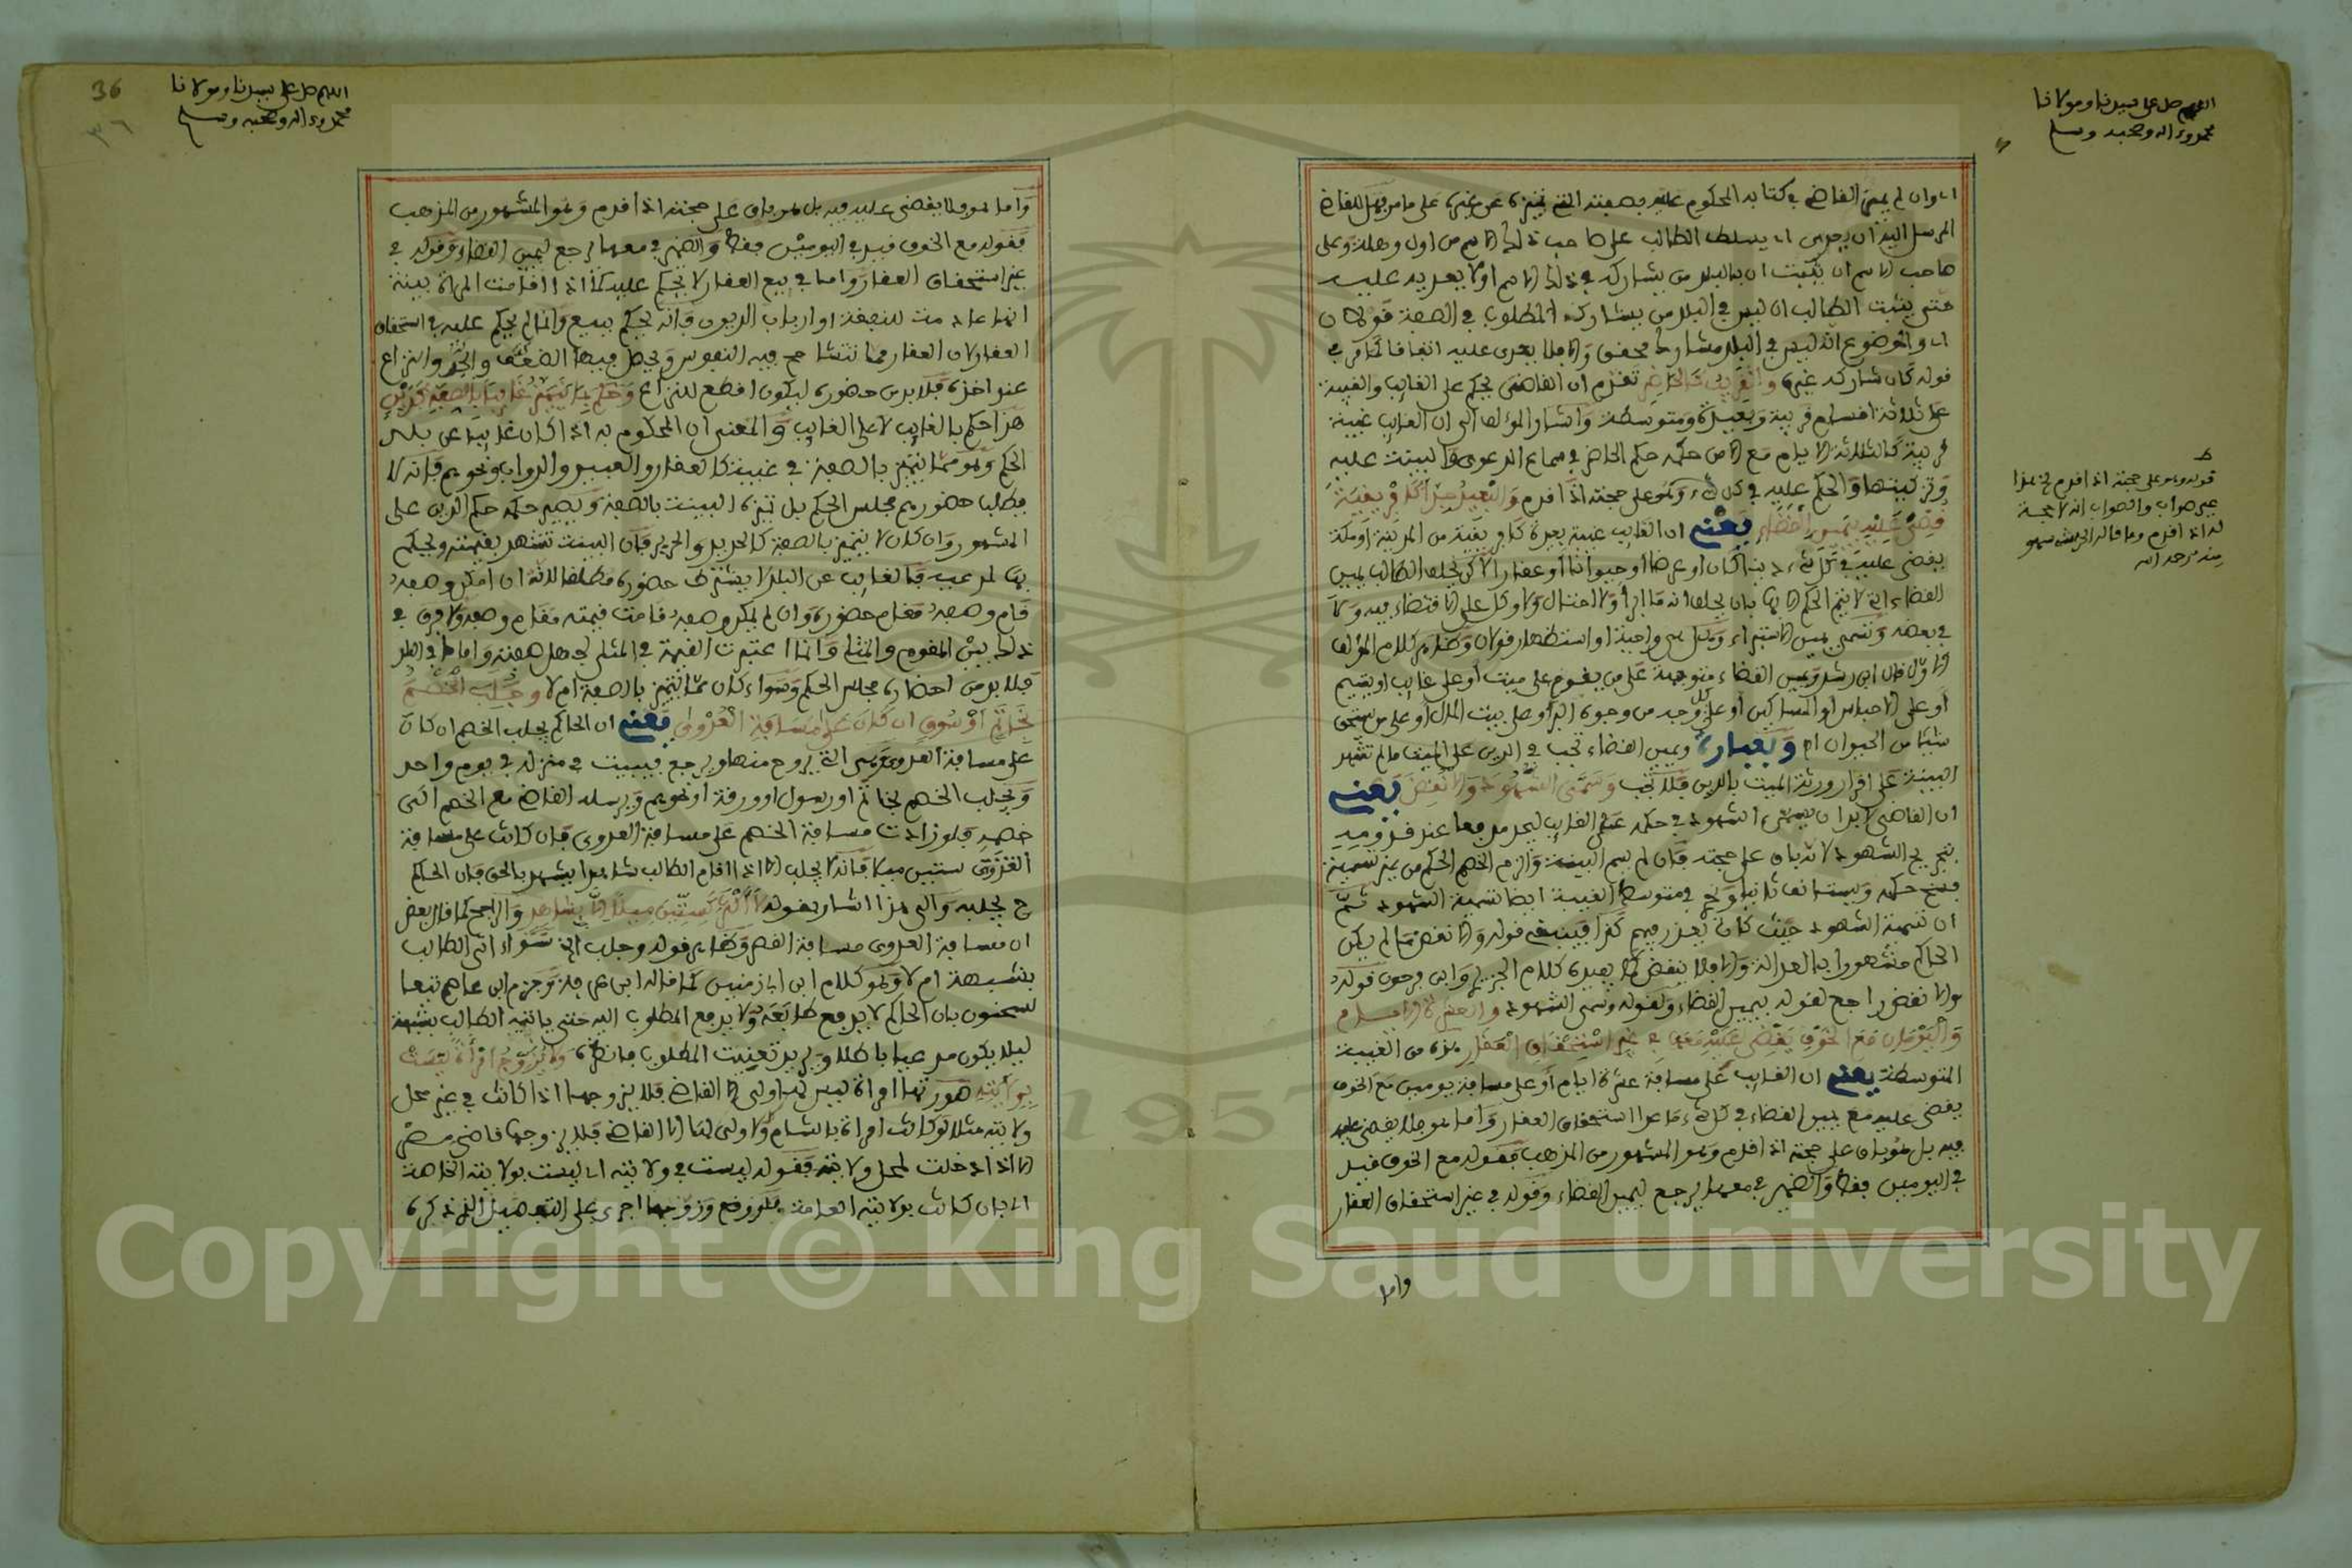 اللهم صل على سيدنا ومولانا
محمد وءاله وصحبه وسلم
اي وان لم يميز القاضي في كتابه المحكوم عليه بصفته التي تميزه عن غيره على ما مر فهل للقاضي
المرسل اليه ان يسلط الطالب على صاحب ذلك الاسم من اول وهلة وعلى
صاحب الاسم ان يثبت ان بالبلد من يشاركه في ذلك الاسم او لا يعديه عليه
حتى يثبت الطالب ان ليس في البلد من يشارك المطلوب في الصفة قولان
اي والموضوع انه ليس في البلد مشارك محقق والا فلا يعدى عليه اتفاقا كما مر في
قوله كان شاركه غيره والقريب كالحاضر تقدم ان القاضي يحكم على الغايب والغيبة
على ثلاثة اقسام قريبة وبعيدة ومتوسطة واشار المؤلف الى ان الغايب غيبة
قريبة كالثلاثة الايام مع الامن حكمه حكم الحاضر في سماع الدعوى والبينة عليه
وتزكيتها والحكم عليه في كل شيء وهو على حجته اذا قدم والبعيد جدا كافريقية
قضي عليه بيمين القضاء يعني ان الغايب غيبة بعيدة كافريقية من المدينة او مكة
يقضى عليه في كل شيء دينا كان او عرضا او حيوانا او عقارا لكن يحلف الطالب يمين
القضاء اي لا يتم الحكم الا بها بان يحلف انه ما ابرأ ولا احتال ولا وكل على الاقتضاء فيه ولا
في بعضه وتسمى يمين الاستبراء وهل هي واجبة او استظهار قولان وظاهر كلام المؤلف
الاول قال ابن رشد ويمين القضاء متوجهة على من يقوم على ميت او على غايب او يتيم
او على الاحباس او المساكين او على كل وجه من وجوه البر او على بيت المال او على من استحق
شيئا من الحيوان اه وبعبارة ويمين القضاء تجب في الدين على الميت ما لم تشهد
البينة على اقرار ورثة الميت بالدين فلا تجب وسمى الشهود والا نقض يعني
ان القاضي لا بد ان يسمي الشهود في حكمه على الغايب ليجد مدفعا عند قدومه
بتجريح الشهود لانه باق على حجته فان لم يسم البينة والزم الخصم الحكم من غير تسمية
فسخ حكمه ويستانف ثانيا وفي متوسط الغيبة ايضا تسمية الشهود ثم
ان تسمية الشهود حيث كان يعذر فيهم كذا فينبغي قوله والا نقض ما لم يكن
الحاكم مشهورا بالعدالة والا فلا ينقض كما يفيده كلام الجزيري وابن فرحون فقوله
والا نقض راجع لقوله بيمين القضاء ولقوله وسمى الشهود والعشرة الايام
واليومان مع الخوف يقضى عليه معها في غير استحقاق العقار هذه من الغيبة
المتوسطة يعني ان الغايب على مسافة عشرة ايام او على مسافة يومين مع الخوف
يقضى عليه مع يمين القضاء في كل شيء ما عدا استحقاق العقار واما هو فلا يقضى عليه
فيه بل هو باق على حجته اذا قدم وهو المشهور من المذهب فقوله مع الخوف قيد
في اليومين فقط والضمير في معها يرجع ليمين القضاء وقوله في غير استحقاق العقار
واما
ط
قوله وهو على حجته اذا قدم في هذا
غير صواب والصواب انه لا حجة
له اذا قدم وما قاله الخرشي سهو
منه رحمه الله
36
٣٦
اللهم صل على سيدنا ومولانا
محمد وءاله وصحبه وسلم
واما هو فلا يقضى عليه فيه بل هو باق على حجته اذا قدم وهو المشهور من المذهب
فقوله مع الخوف قيد في اليومين فقط والضمير في معها يرجع ليمين القضاء وقوله في
غير استحقاق العقار واما في بيع العقار لا يحكم عليه كما اذا اقامت المراة بينة
انها عدمت للنفقة او ارباب الديون فانه يحكم ببيع وانما لم يحكم عليه في استحقاق
العقار لان العقار مما تتشاحح فيه النفوس ويحصل فيها الضغن والحقد والنزاع
عند اخذه فلا بد من حضوره ليكون اقطع للنزاع وحكم بما يتميز غايبا بالصفة كدين
هذا حكم بالغايب لا على الغايب والمعنى ان المحكوم به اذا كان غايبا عن بلد
الحكم وهو مما يتميز بالصفة في غيبته كالعقار والعبيد والدواب ونحوهم فانه لا
يطلب حضورهم مجلس الحكم بل تميزه البينة بالصفة ويصير حكمه حكم الدين على
المشهور وان كان لا يتميز بالصفة كالحديد والحرير فان البينة تشهد بقيمته ويحكم
بها لمدعيه فالغايب عن البلد لا يشترط حضوره مطلقا لانه ان امكن وصفه
قام وصفه مقام حضوره وان لم يمكن وصفه قامت قيمته مقام وصفه ولا فرق في
ذلك بين المقوم والمثلي وانما اعتبرت القيمة في المثلي لجهل صفته واما ما في البلد
فلا بد من احضاره مجلس الحكم وسواء كان مما يتميز بالصفة ام لا وجلب الخصم
بخاتم او رسول ان كان على مسافة العدوى يعني ان الحاكم يجلب الخصم ان كان
على مسافة العدوى وهي التي يروح منها ويرجع فيبيت في منزله في يوم واحد
ويجلب الخصم بخاتم او رسول او ورقة او نحوهم ويرسله القاضي مع الخصم الى
خصمه فلو زادت مسافة الخصم على مسافة العدوى فان كانت على مسافة
العدوى ستين ميلا فانه لا يجلب الا اذا اقام الطالب شاهدا يشهد بالحق فان الحاكم
ح يجلبه والى هذا اشار بقوله لا اكثر كستين ميلا الا بشاهد والراجح كما قال بعض
ان مسافة العدوى مسافة القصر وظاهر قوله وجلب الخ سواء اتى الطالب
بشبهة ام لا وهو كلام ابن ابي زمنين كما قاله ابن عرفة وجزم ابن عاصم تبعا
لسحنون بان الحاكم لا يدفع طابعه ولا يرفع المطلوب اليه حتى ياتيه الطالب بشبهة
ليلا يكون مدعيا باطلا ويريد تعنيت المطلوب فانظره ولا يزوج امراة ليست
بولايته صورتها امراة ليس لها ولي الا القاضي فلا يزوجها اذا كانت في غير محل
ولايته مثلا لو كانت امراة بالشام ولا ولي لها الا القاضي فلا يزوجها قاضي مصر
الا اذا دخلت لمحل ولايته فقوله ليست في ولايته اي ليست بولايته الخاصة
اي بان كانت بولايته العامة فلو وقع وزوجها اجري على التفصيل الذي ذكره
Copyright © King Saud University
1957